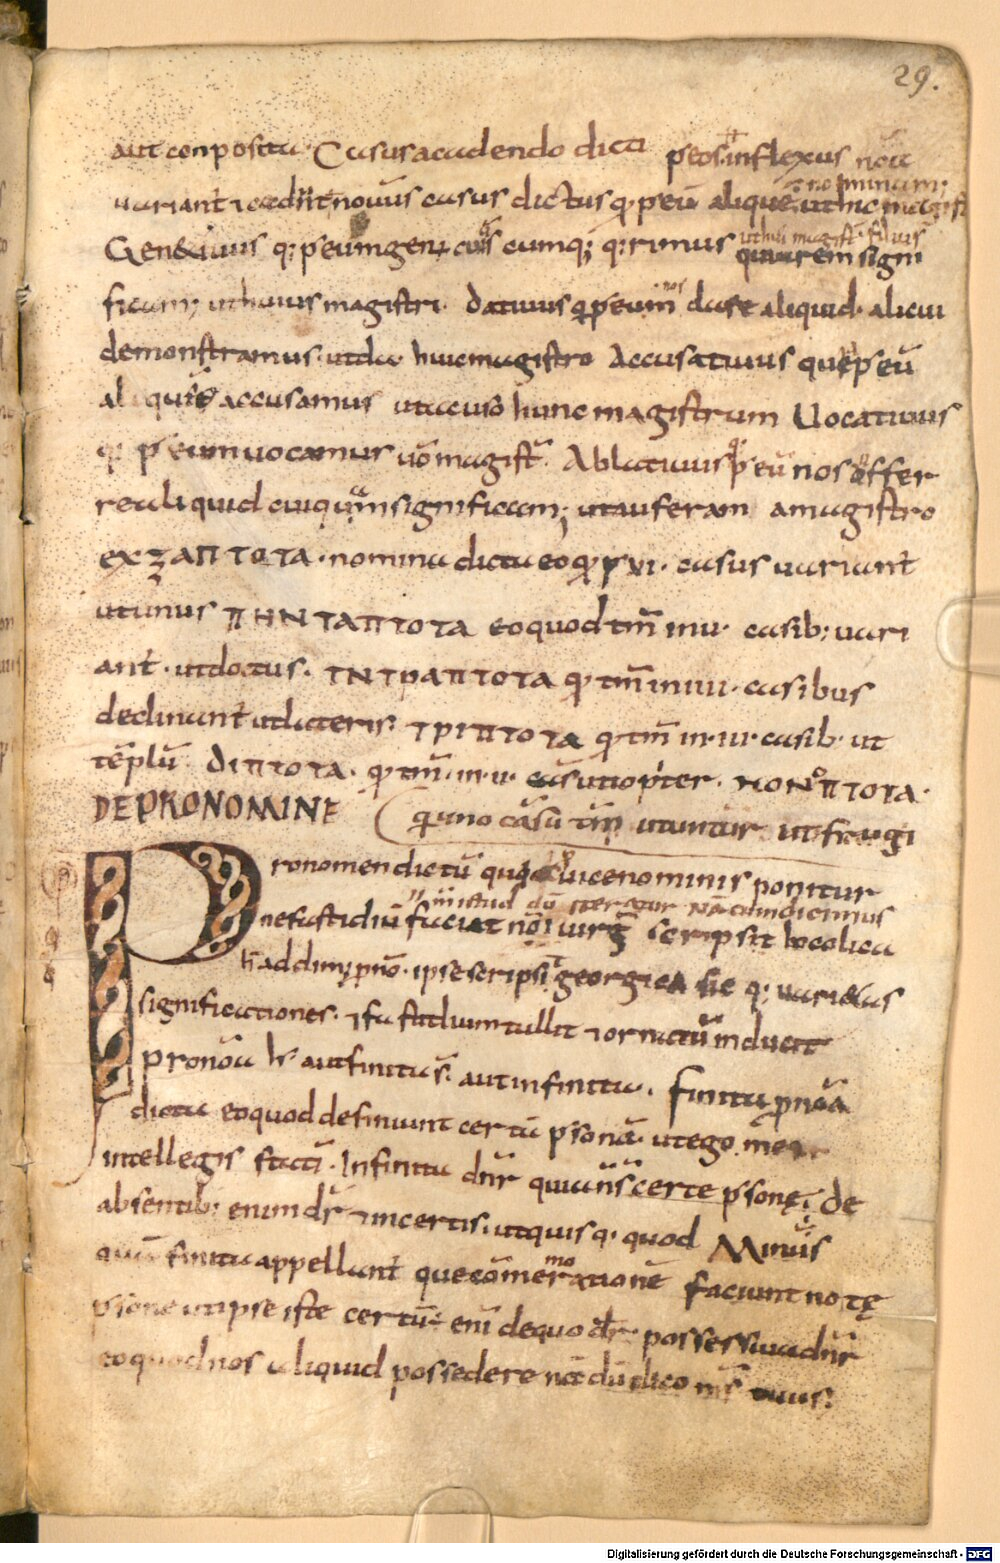 29.
aut conposita. Casus a cadendo dicti p eos inflexus noa
uariant ⁊ cadunt nouus casus dictus q p eu alique ut hic magist
nominam;
Genetiuus q; p eum genus cuius cumq; q:rimus
ut hui magist filius
rem signi
ficam; ut huius magistri. Datiuus q p eum nos dare aliquid alicui
demonstramus ut da huic magistro Accusatiuus que p eu
aliquē accusamus ut accuso hunc magistrum Uocatiuus
q p eum uocamus ut o magist. Ablatiuus q p eu nos offer
re aliquid cuiquam significam; ut aufero a magistro
exΖΑΠΤΟΤΑ. nomina dicta eo q p vi. casus uariant
ut unus ΠΗΝΤΑΠΤΟΤΑ eo quod tm in v. casib; uari
ant. ut doctus. ΤΝΤΡΑΠΤΟΤΑ q tm in iiii. casibus
declinant ut lateris. ΤΡΙΠΤΟΤΑ q tm in. iii. casib. ut
teplu ΔΙΠΤΟΤΑ. q tm. in. ii. cas ut iupiter. ΜΟΝΟΠΤΟΤΑ.
DE PRONOMINE q uno casu tm utuntur ut frugi
Pronomen dictu quia uice nominis ponitur
istud du iteratur Nā cum dicimus
ne fastidiu faciat noi uirg scripsit bocolica
addim; pno. ipse scripsit georgica sic q; uarietas
significationes. ⁊ fastidium tullit ⁊ ornatū inducit
Pronoa aut finita s. aut infinita. Finita pnoa
dicta eo quod definiunt certā psonā. ut ego me
intellegis stati. Infinita dnr quia n s certe psone: de
absentib; enim dr ⁊ incertis. ut quis q. quod Minus
quā finita appellant que comemoratione faciunt notę
psone ut ipse iste certū eni de quo dr possessiua dnr
eo quod nos aliquid possedere nā dū dico ms tuus:
Digitalisierung gefördert durch die Deutsche Forschungsgemeinschaft - DFG